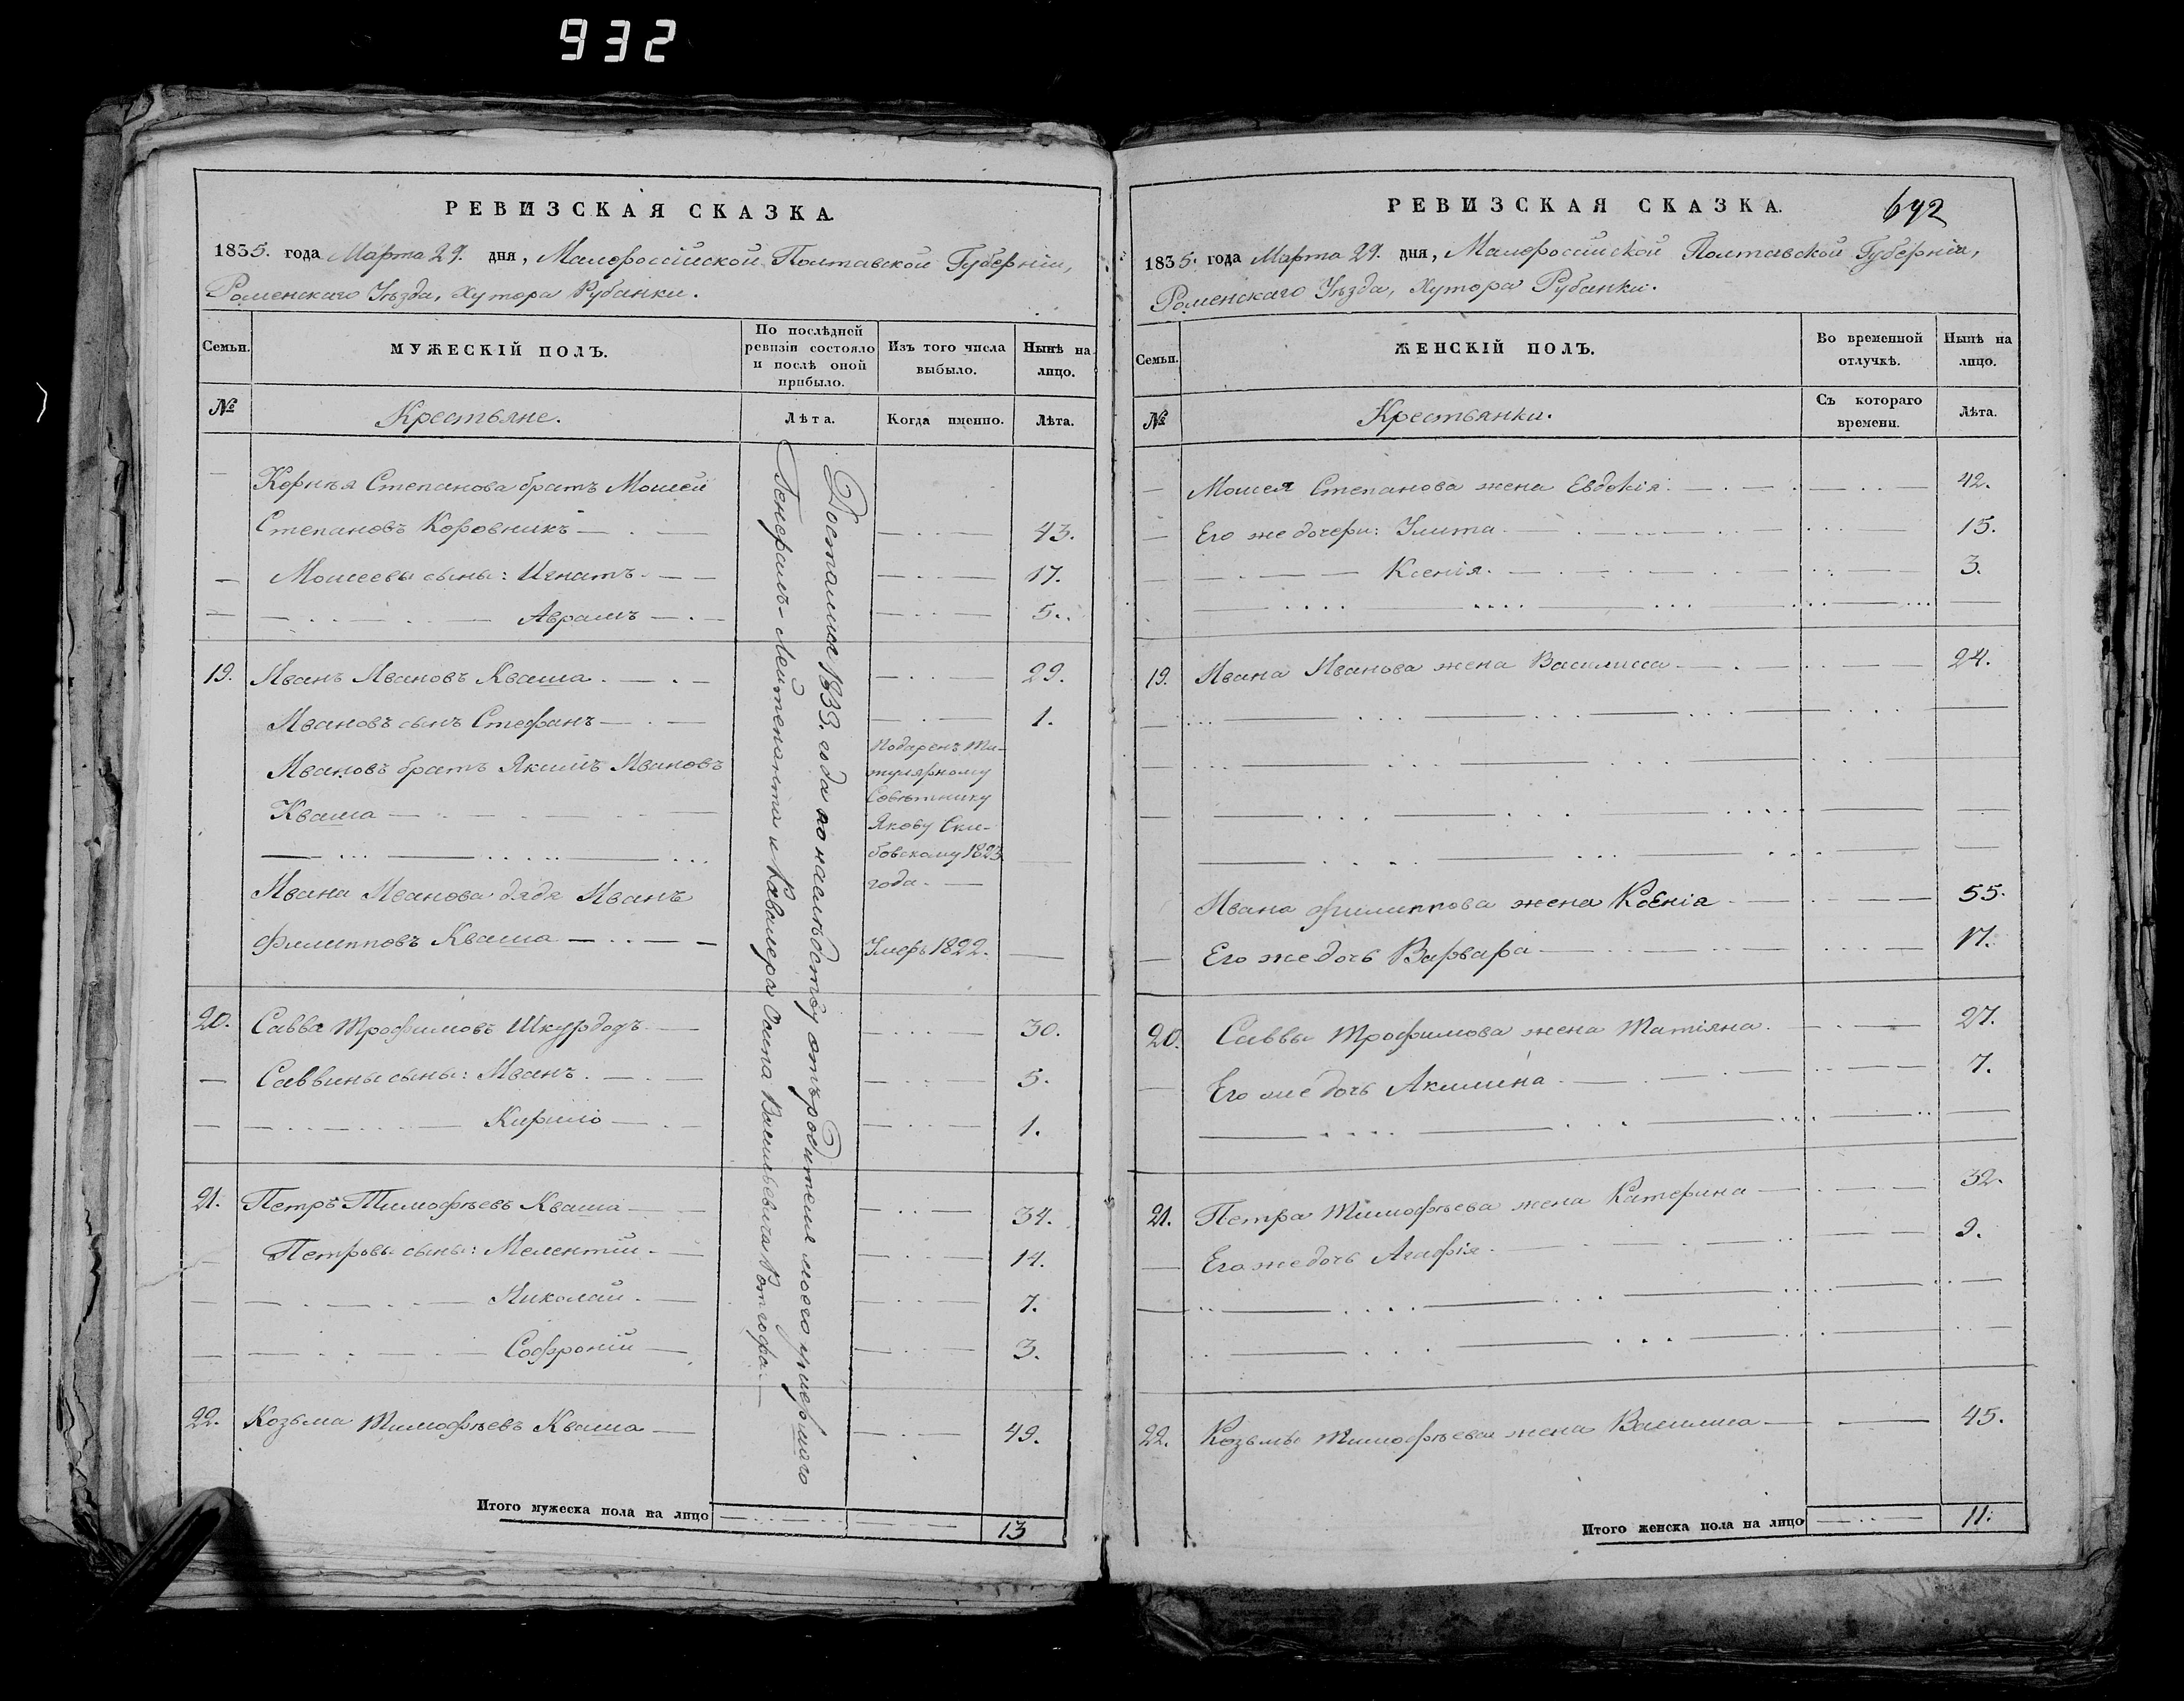 932
РЕВИЗСКАЯ СКАЗКА.
1835. года Марта 29. дня, Малороссійской Полтавской Губерніи,
Роменскаго Уѣзда, Хутора Рубанки.
Семьи.
МУЖЕСКІЙ ПОЛЪ.
По послѣдней
ревизіи состояло
и послѣ оной
прибыло.
Изъ того числа
выбыло.
Нынѣ на
лицо.
№
Крестьяне.
Лѣта.
Когда именно.
Лѣта.
Корнѣя Степанова братъ Моисей
Степановъ Коровникъ 43.
Моисеевы сыны: Игнатъ. 17.
Аврамъ 5.
19. Иванъ Ивановъ Кваша. 29.
Ивановъ сынъ Стефанъ 1.
Ивановъ братъ Якимъ Ивановъ
Кваша
Подаренъ Ти-
тулярному
Совѣтнику
Якову Ски-
бовскому 1823
года.
Ивана Иванова дядя Иванъ
Филипповъ Кваша Умеръ 1822.
20. Савва Трофимовъ Шкурдодъ 30.
Саввины сыны: Иванъ. 5.
Кирило 1.
21. Петръ Тимофѣевъ Кваша 34.
Петровы сыны: Мелентій. 14.
Николай. 7.
Софроній 3.
22. Козьма Тимофѣевъ Кваша 49.
Достались 1833. года по наслѣдству отъ родителя моего умершаго
Генералъ-Лейтенанта и Кавалера Осипа Васильевича Ротгофа
Итого мужеска пола на лицо 13
РЕВИЗСКАЯ СКАЗКА.
692
1835. года Марта 29. дня, Малороссийской Полтавской Губерніи,
Роменскаго Уѣзда, Хутора Рубанки.
Семьи.
ЖЕНСКІЙ ПОЛЪ.
Во временной
отлучкѣ.
Нынѣ на
лицо.
№
Крестьянки.
Съ котораго
времени.
Лѣта.
Моисея Степанова жена Евдокія. 42.
Его же дочери: Улита 15.
Ксенія. 3.
19. Ивана Иванова жена Василиса 24.
Ивана Филиппова жена Ксенія 55.
Его же дочь Варвара 17.
20. Саввы Трофимова жена Татіяна. 27.
Его же дочь Акилина 7.
21. Петра Тимофѣева жена Катерина 32.
Его же дочь Агафія. 9.
22. Козьмы Тимофѣева жена Василиса 45.
Итого женска пола на лицо 11.